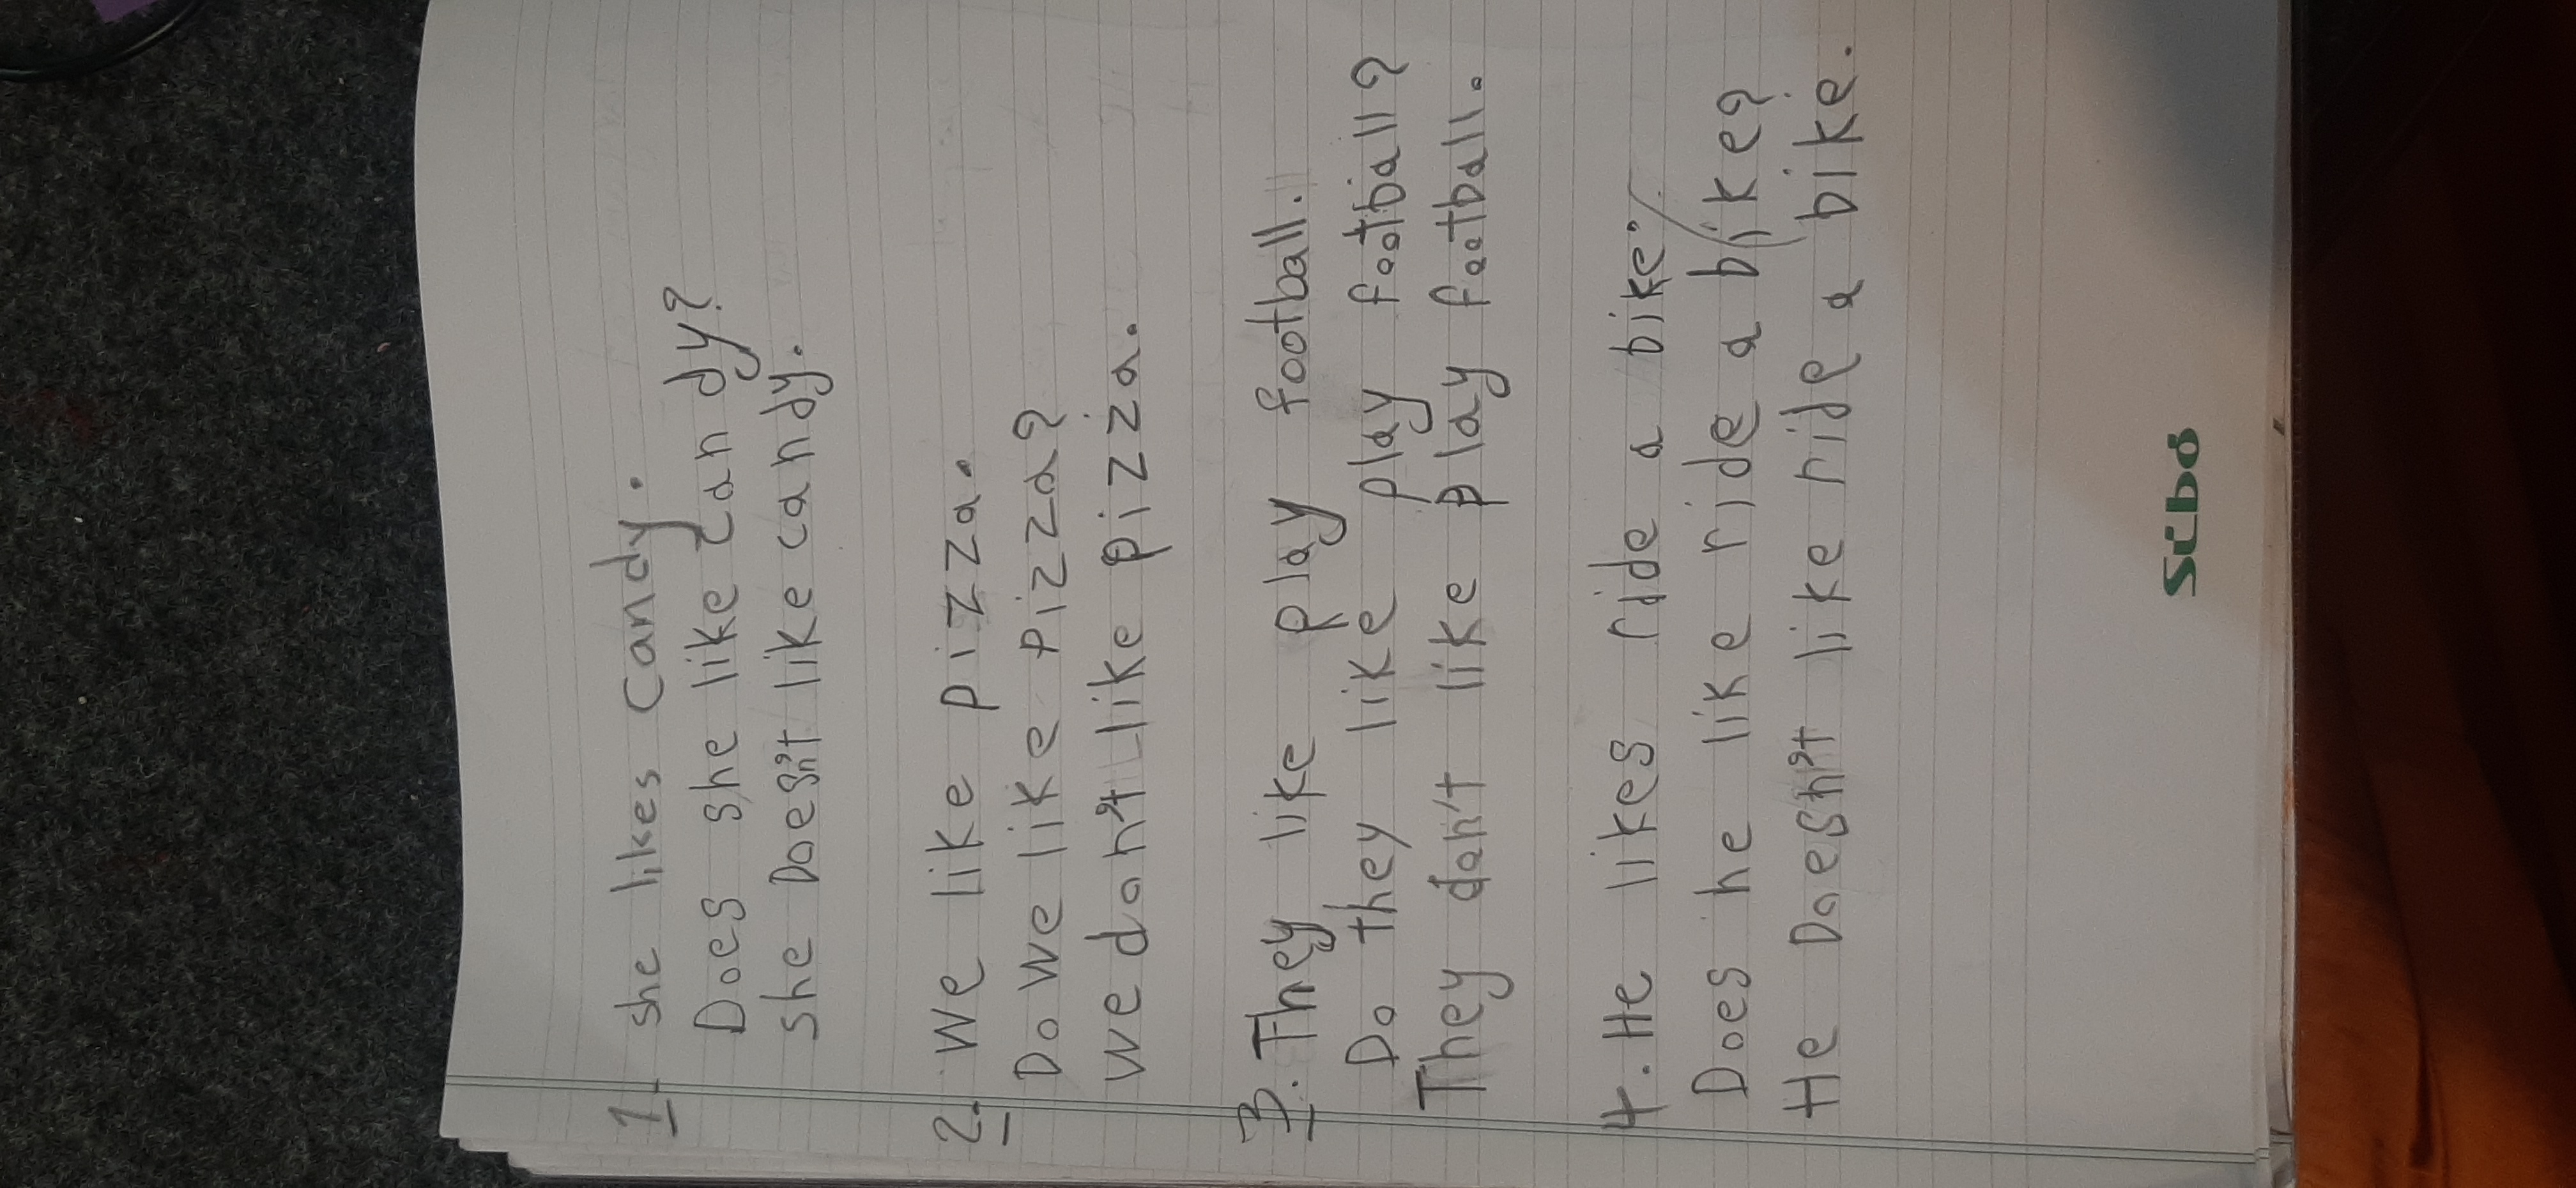 1. she likes candy.
Does she like candy?
she Doesn't like candy.
2. We like pizza.
Do we like pizza?
we don't like pizza.
3. They like play football.
Do they like play football?
They don't like play football.
4. He likes ride a bike.
Does he like ride a bike?
He Doesn't like ride a bike.